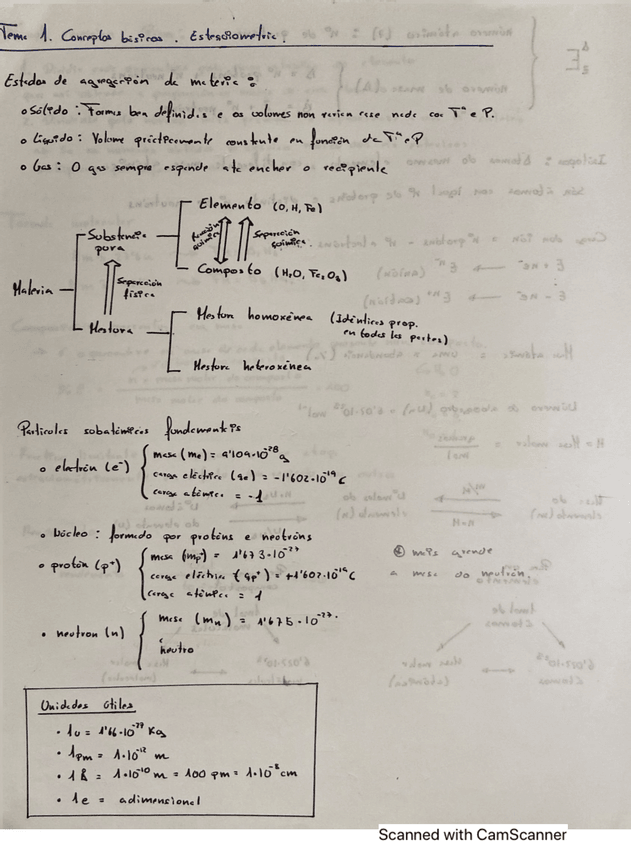 Tema 1. Conceptos básicos. Estequiometría.
Estados de agregación da materia:
o Sólido: Forma ben definida e os volumes non varían case nada coa Tª e P.
o Líquido: Volume prácticamente constante en función da Tª e P
o Gas: O gas sempre expande ata encher o recipiente
Elemento (O, H, Fe)
Substancia pura
Reacción química
Separación química
Composto (H2O, Fe2O3)
Materia
Separación física
Mestura
Mestura homoxénea (Idénticas prop. en todas las partes)
Mestura heteroxénea
Partículas subatómicas fundamentais
o electrón (e⁻)
masa (me) = 9'109·10⁻²⁸ g
carga eléctrica (qe) = -1'602·10⁻¹⁹ C
carga atómica = -1
o Núcleo: formado por protóns e neutróns
o protón (p⁺)
masa (mp⁺) = 1'673·10⁻²⁷
carga eléctrica (qp⁺) = +1'602·10⁻¹⁹ C
carga atómica = 1
máis grande
a masa do neutrón.
o neutron (n)
masa (mn) = 1'675·10⁻²⁷
neutro
Unidades útiles
· 1u = 1'66·10⁻²⁷ Kg
· 1pm = 1·10⁻¹² m
· 1 Å = 1·10⁻¹⁰ m = 100 pm = 1·10⁻⁸ cm
· 1e = adimensional
Scanned with CamScanner